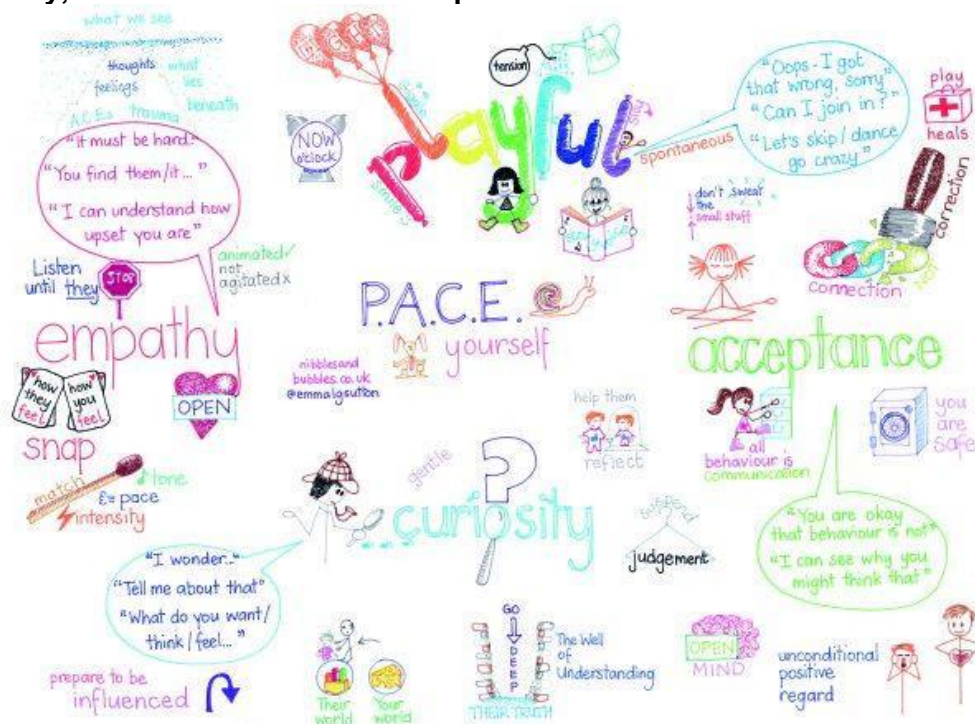 what we see
thoughts
feelings
what
lies
beneath
A.C.Es
trauma
"it must be hard."
"You find them/it..."
"I can understand how
upset you are"
Listen
until they
STOP
animated ✓
not
agitated x
empathy
how
they
feel
how
you
feel
OPEN
snap
match
tone
£= pace
intensity
NOW
o'clock
tension
fun
playful
smile
silly
spontaneous
"Oops - I got
that wrong, sorry"
"Can I join in?"
"Let's skip / dance
go crazy"
play
heals
don't sweat
the
small stuff
correction
connection
P.A.C.E.
yourself
nibblesand
bubbles.co.uk
@emmalgsutton
acceptance
all
behaviour is
communication
you
are
safe
"You are okay
that behaviour is not"
"I can see why you
might think that"
help them
reflect
gentle
?
...curiosity
suspend
judgement
"I wonder..."
"Tell me about that"
"What do you want/
think / feel..."
prepare to be
influenced
Their
world
Your
world
GO
DEEP
The Well
of
Understanding
THEIR TRUTH
OPEN
MIND
unconditional
positive
regard